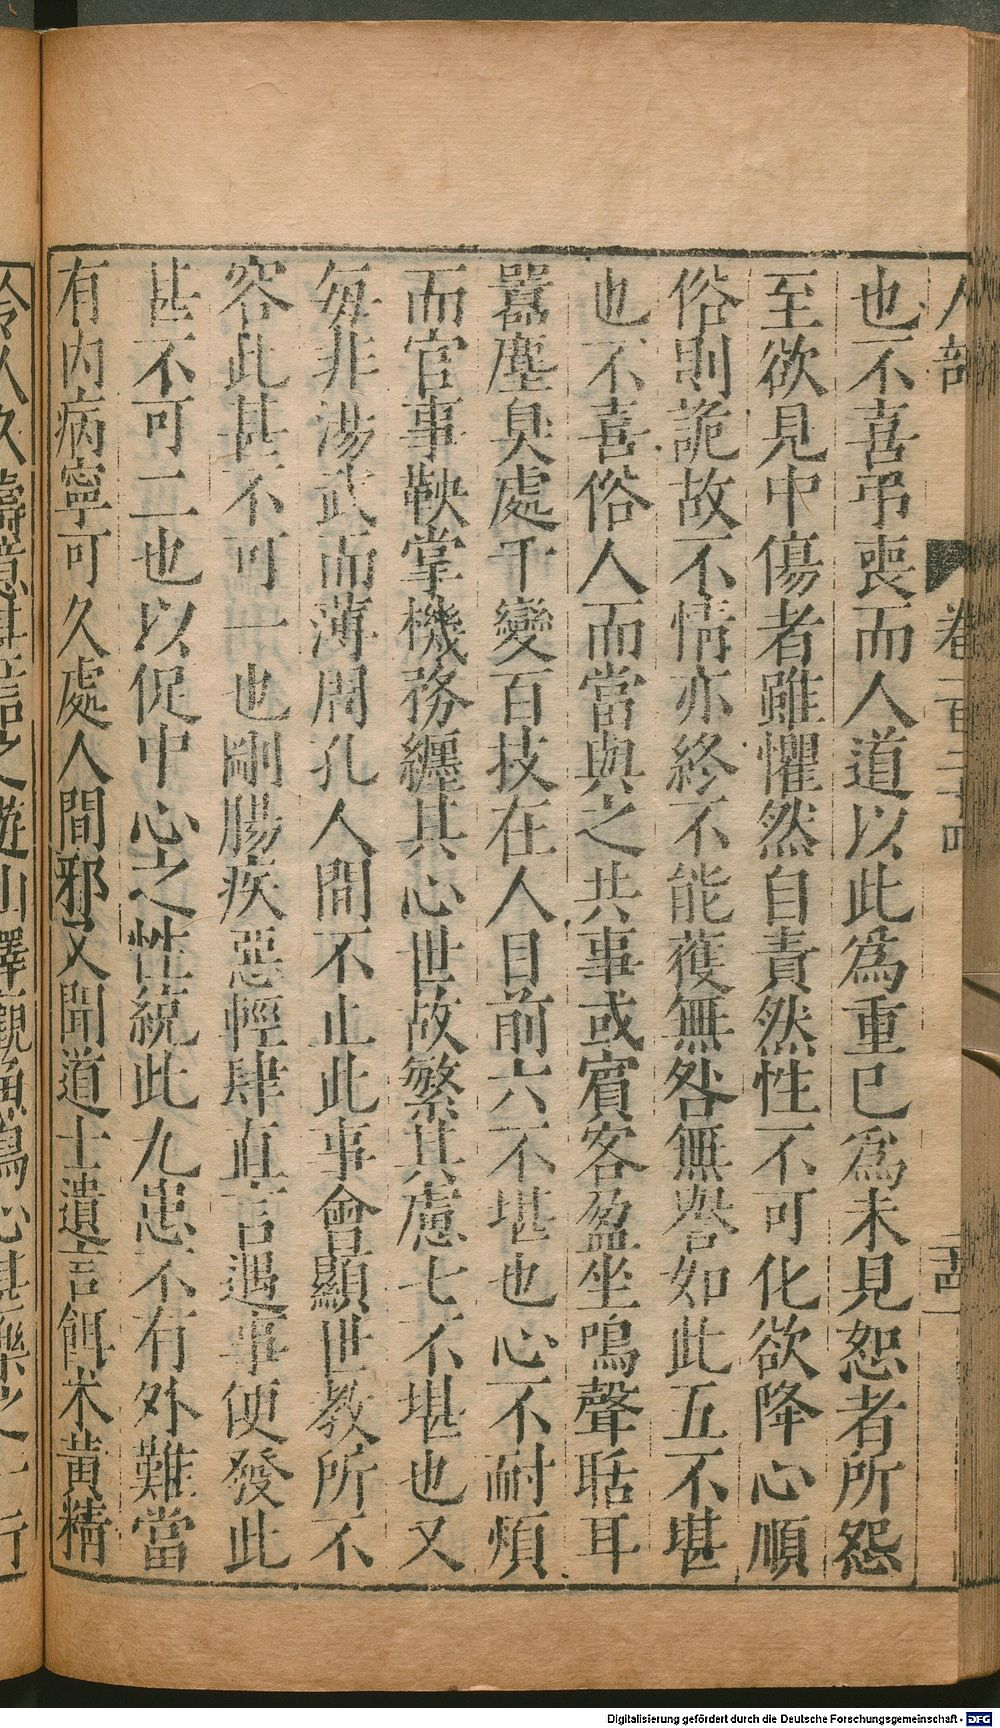 人部
卷二百二十四
也不喜弔喪而人道以此為重已為未見恕者所怨
至欲見中傷者雖懼然自責然性不可化欲降心順
俗則詭故不情亦終不能獲無咎無譽如此五不堪
也不喜俗人而當與之共事或賓客盈坐鳴聲聒耳
囂塵臭處千變百技在人目前六不堪也心不耐煩
而官事鞅掌機務纏其心世故繁其慮七不堪也又
每非湯武而薄周孔人間不止此事會顯世教所不
容此甚不可一也剛腸疾惡輕肆直言遇事便發此
甚不可二也以促中心之性統此九患不有外難當
有內病寧可久處人間邪又聞道士遺言餌术黃精
令人久壽意甚信之遊山澤觀魚鳥心甚樂之一行
Digitalisierung gefördert durch die Deutsche Forschungsgemeinschaft - DFG